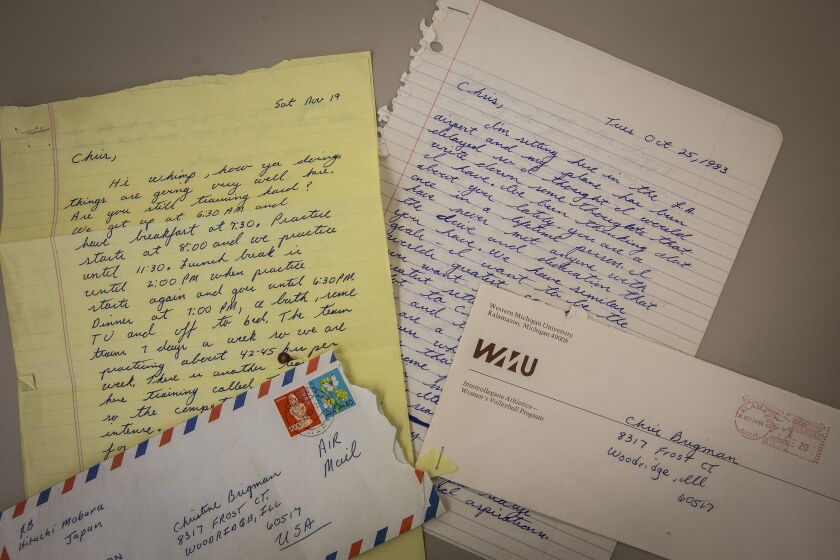 Sat Nov 19
Chris,
Hi whimp, how ya doing,
things are going very well here.
Are you still training hard?
We get up at 6:30 AM and
have breakfast at 7:30. Practice
starts at 8:00 and we practice
until 11:30. Lunch break is
until 2:00 PM when practice
starts again and goes until 6:30 PM.
Dinner at 7:00 PM, a bath, some
TV and off to bed. The team
trains 7 days a week so we are
practicing about 42-45 hrs per
week. There is another team
here training called
so the compet
intense.
for
Tues Oct 25, 1983
Chris,
I'm sitting here in the L.A.
airport and my plane has been
delayed so I thought I would
write down some thoughts that
I have. I've been thinking alot
about you lately. You are a
once in a lifetime person. I
have never met anyone with
the drive and dedication that
you have. We have similar
goals - I want to be the
greatest
want
to c
and
are a
aspirations.
Western Michigan University
Kalamazoo, Michigan 49008
WMU
Intercollegiate Athletics—
Women's Volleyball Program
Chris Brigman
8317 Frost CT.
Woodridge, Ill
60517
20
AIR
Mail
RB
Hitachi Mobara
Japan
Christine Brigman
8317 FROST CT.
WOODRIDGE, ILL
60517
USA